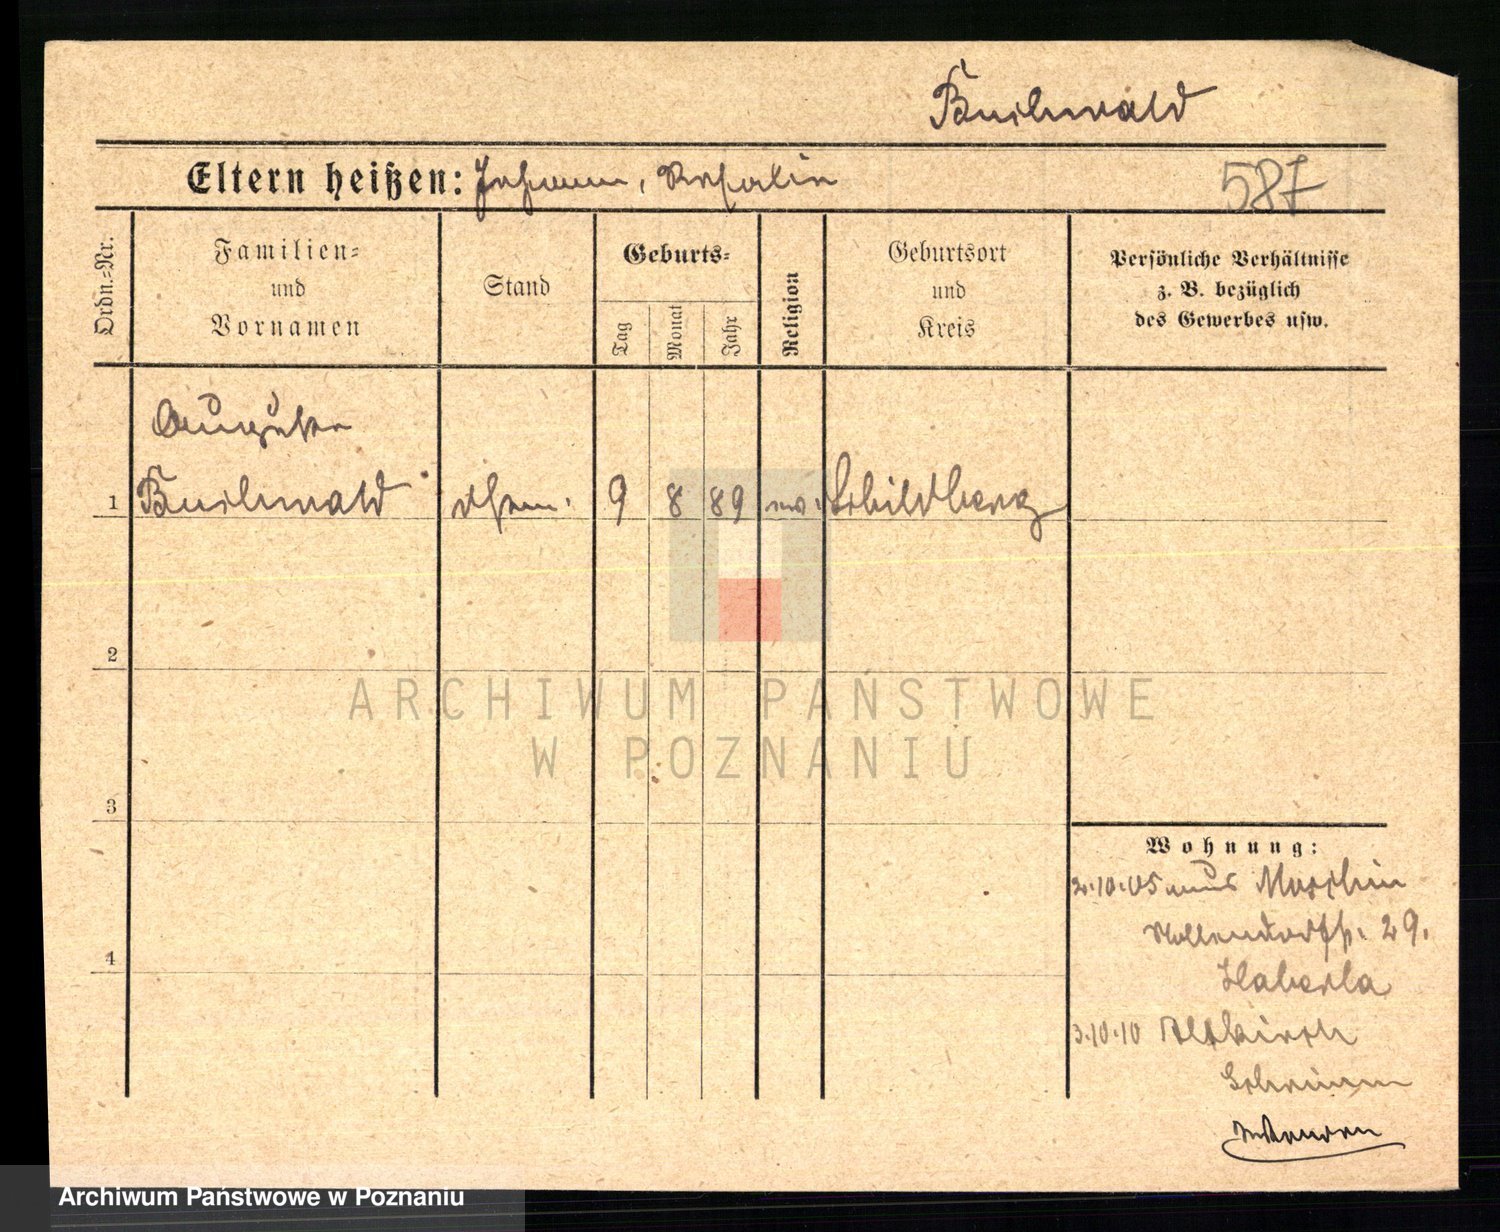 Buchwald
Eltern heißen: Johann, Rosalie
587
Ordn.-Nr.
Familien-
und
Vornamen
Stand
Geburts-
Tag
Monat
Jahr
Religion
Geburtsort
und
Kreis
Persönliche Verhältnisse
z. B. bezüglich
des Gewerbes usw.
Auguste
1 Buchwald 9 8 89 Schildberg
2
3
4
Wohnung:
2.10.05 aus
Nollendorfstr. 29.
3.10.10 Altkirch
ARCHIWUM PAŃSTWOWE
W POZNANIU
Archiwum Państwowe w Poznaniu